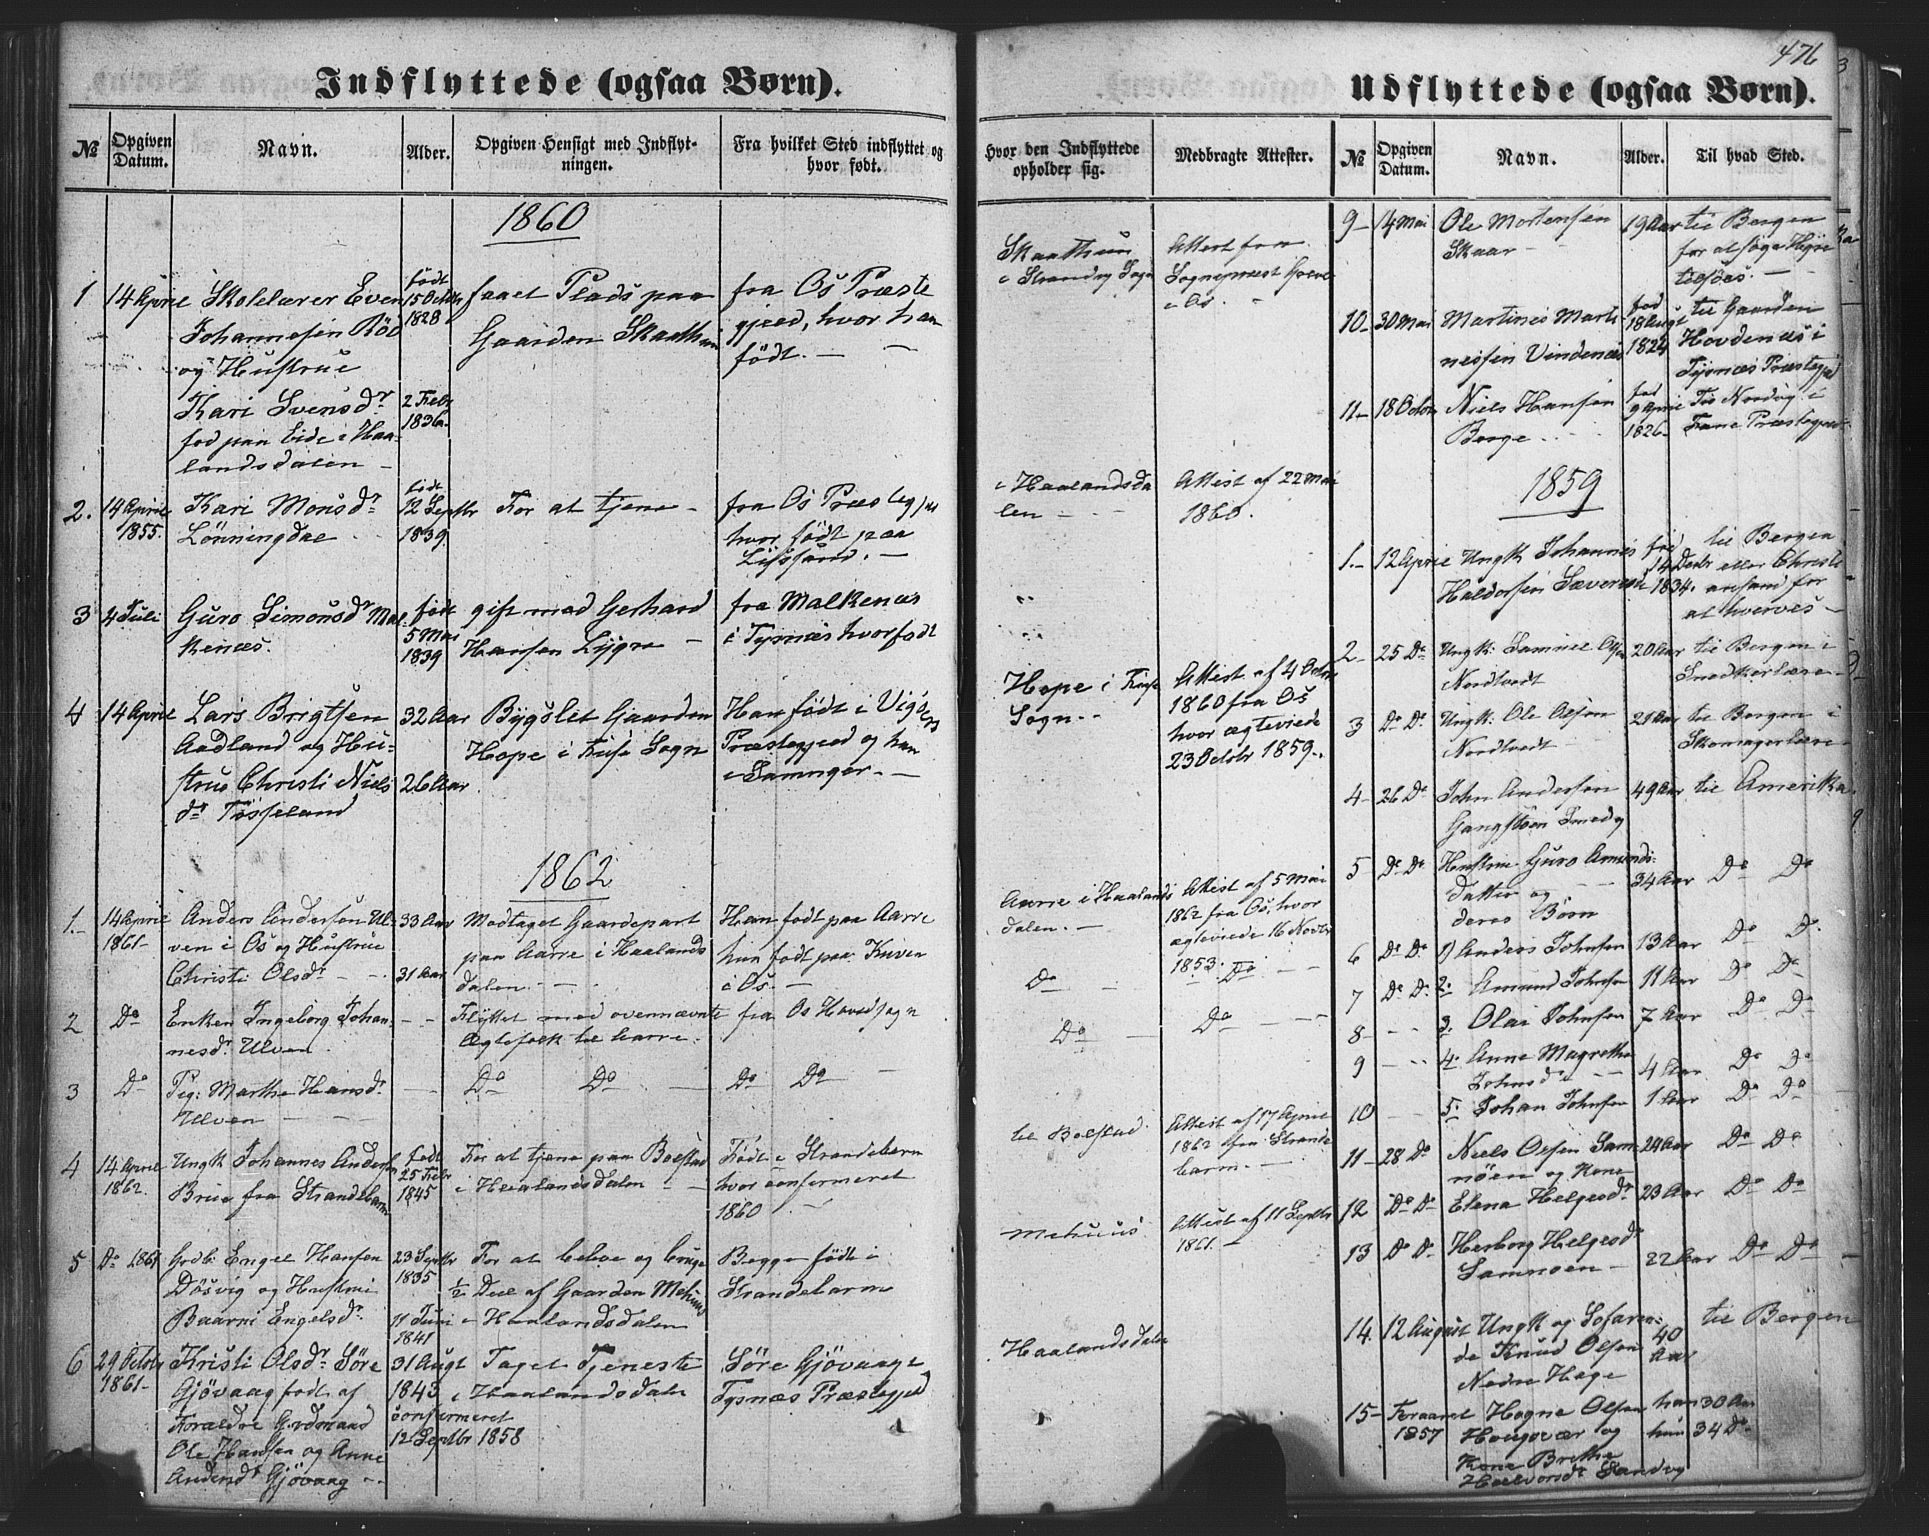 476
Indflyttede (ogsaa Børn).
№
Opgiven Datum.
Navn.
Alder.
Opgiven Hensigt med Indflyt-
ningen.
Fra hvilket Sted indflyttet og
hvor født.
Hvor den Indflyttede
opholder sig.
Medbragte Attester.
1860
1
14 April
Skolelærer Even
Johannesen Röd
og Hustrue
Kari Svensdr
fød paa Eide i Haa-
landsdalen
født
15 Octbr
1828
2 Febr
1836
faaet Plads paa
Gaarden Skaathun
fra Os Præste
gjeld, hvor han
født.
Skaathun
i Strandvig Sogn
Attest fra
Sognepræst
i Os
2.
14 April
1855.
Kari Monsdr
Lönningdal
født
12 Septbr
1839
For at tjene
fra Os Præstegj
hvor født paa
Lÿssand.
i Haalandsda
len
Attest af 22 Mai
1860.
3
4 Juli
Guro Simonsdr Mal-
kenæs.
født
5 Mai
1839
gift med Gerhard
Hansen Lygre
fra Malkenæs
i Tysnæs hvor født
4
14 April
Lars Brigtsen
Aadland og Hu-
strue Christi Niels
dr Tösseland
32 Aar
26 Aar
Bygslet Gaarden
Hope i Fuse Sogn
Han født i Vigörs
Præstegjeld og hun
i Samnger.
Hope i Fuse
Sogn.
Attest af 4 Octbr
1860 fra Os
hvor ægteviede
23 Octobr 1859.
1862
1.
14 April
1861
Anders Andersön Ul-
ven i Os og Hustrue
Christi Olsdr
33 Aar
31 Aar
Modtaget Gaardepart
paa Aarre i Haalands
dalen
Han født paa Aarre
hun født paa Kuven
i Os.
Aarre i Haalands
dalen.
Attest af 5 Mai
1862 fra Os, hvor
ægteviede 16 Novbr
1853.
2
Do
Enken Ingeborg Johan-
nesdr Ulven
Flyttet med ovennævnte
Ægtefolk til Aarre.
fra Os Hovedsogn
Do
Do
3
Do
Pig: Marthe Hansdr
Ulven
Do Do
Do Do
Do
Do
4
14 April
1862.
Ungk Johannes Andersen
Brue fra Strandebarm
født
25 Febr
1845
For at tjene paa Bolstad
i Haalandsdalen
Født i Strandebarm
hvor confirmeret
1860
til Bolstad
Attest af 17 April
1862 fra Strande
barm.
5
Do 1861
Grdbr Engel Hansen
Dösvig og Hustrue
Baarni Engelsdr
23 Septbr
1835
11 Juni
1841
For at beboe og bruge
1/2 Deel af Gaarden Mehuus
i Haalandsdalen
Begge født i
Strandebarm
Mehuus
Attest af 11 Septbr
1861.
6
29 Octobr
1861
Kristi Olsdr Söre
Gjövaag født af
Foraldre Grdmand
Ole Hansen og Anne
Andersdr Gjövaag
31 Augt
1843
confirmeret
12 Septbr 1858
Taget Tjeneste
i Haalandsdalen
Söre Gjövaag
Tysnæs Præstegjeld
Haalandsdalen
Udflyttede (ogsaa Børn).
№
Opgiven Datum.
Navn.
Alder.
Til hvad Sted.
9
14 Mai
Ole Mortensen
Skaar
19 Aar
til Bergen
for at söge Hyre
tilsöes.
10
30 Mai
Martines Marti
nessen Vindenæs
fød
18 Augt
1824
til Gaarden
Hovdenæs i
Tysnæs Præstegjeld
11
18 Octbr
Niels Hansen
Berge
fød
9 April
1826
Til Nordvig i
Fane Præstegjeld
1859
1.
12 April
Ungk Johannes
Haldorsen Sævereid
fød
14 Decbr
1834
til Bergen
eller Christi
ansand for
at hverves
2
25 Do
Ungk: Samuel Olsen
Nordtvedt
20 Aar
til Bergen i
Snedkerlære
3
Do Do
Ungk: Ole Olsen
Nordtvedt
21 Aar
til Bergen i
Skomagerlære
4
26 Do
John Andersen
Gangstöen Smed og
49 Aar
til Amerika
5
Do Do
Hustrue Guro Amunds-
datter og
deres Börn
34 Aar
Do Do
6
Do Do
1) Anders Johnsen
13 Aar
Do Do
7
Do Do
2. Amund Johnsen
11 Aar
Do Do
8
3. Olai Johnsen
7 Aar
Do Do
9
4. Anne Magrethe
Johnsdr
4 Aar
Do Do
10
5. Johan Johnsen
1 Aar
Do Do
11
28 Do
Niels Olsen Sam
nöen og Kone
24 Aar
Do Do
12
Do Do
Elena Helgesdr
23 Aar
Do Do
13
Do Do
Herborg Helgesdr
Samnöen
22 Aar
Do Do
14.
12 August
Ungk og Sofarm-
de Knud Olsen
Nedre Hage
40
Aar
til Bergen
15
Foraaret
1857
Hogne Olsen
Hougevær og
Kone Brithe
Halvorsdr Sandvig
han 30 Aar
hun 34 Do